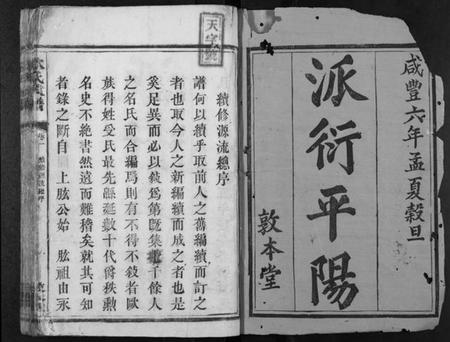 咸豐六年孟夏穀旦
派衍平陽
敦本堂
天字號
續修源流總序
譜何以續乎取前人之舊編續而訂之
者也取今人之新編續而成之者也是
奚足異而必以敘為第既集千餘人
之名氏而合編焉則有不得不敘者歐
族得姓受氏最先緜延數十代爵秩勲
名史不絶書然遠而難稽矣就其可知
者錄之斷自 上肱公始 肱祖由永
氏